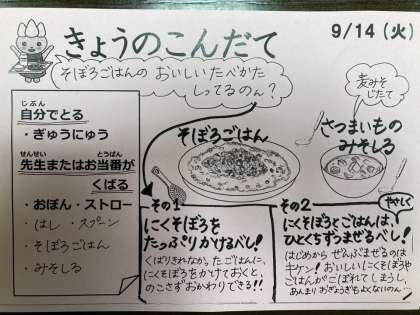 きょうのこんだて
9/14（火）
そぼろごはんの おいしいたべかた
しってるのん？
自分でとる
じぶん
・ぎゅうにゅう
せんせい とうばん
先生またはお当番が
くばる
・おぼん・ストロー
・はし スプーン
・そぼろごはん
・みそしる
そぼろごはん
麦みそ
じたて
さつまいもの
みそしる
その1
にくそぼろを
たっぷりかけるべし！
くばりきれなかったごはんに、
にくそぼろをかけておくと、
のこさずおかわりできる！！
その2
やさしく
にくそぼろとごはんは、
ひとくちずつまぜるべし！
はじめから ぜんぶまぜるのは
キケン！おいしいにくそぼろや
ごはんがこぼれてしまうし、
あんまりおぎょうぎもよくないのん…